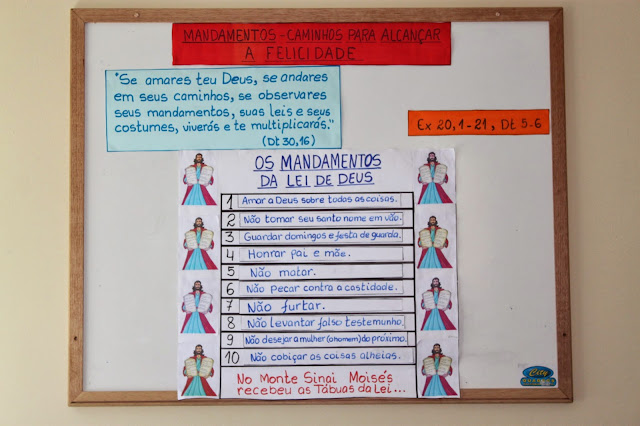 MANDAMENTOS - CAMINHOS PARA ALCANÇAR
A FELICIDADE
"Se amares teu Deus, se andares
em seus caminhos, se observares
seus mandamentos, suas leis e seus
costumes, viverás e te multiplicarás."
(Dt 30,16)
Ex 20,1-21, Dt 5-6
OS MANDAMENTOS
DA LEI DE DEUS
1 Amar a Deus sobre todas as coisas.
2 Não tomar seu santo nome em vão.
3 Guardar domingos e festa de guarda.
4 Honrar pai e mãe.
5 Não matar.
6 Não pecar contra a castidade.
7 Não furtar.
8 Não levantar falso testemunho.
9 Não desejar a mulher (o homem) do próximo.
10 Não cobiçar as coisas alheias.
No Monte Sinai Moisés
recebeu as Tábuas da Lei...
City